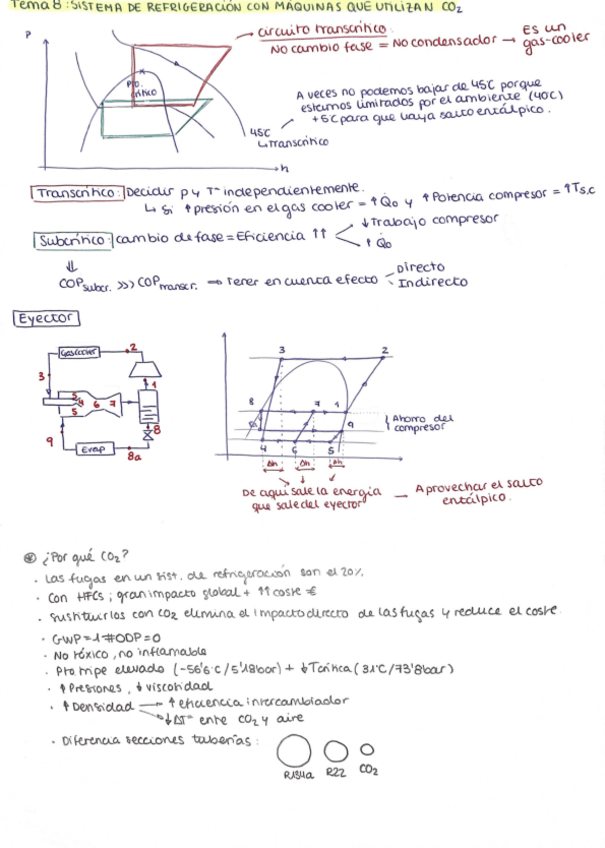 Tema 8: SISTEMA DE REFRIGERACIÓN CON MÁQUINAS QUE UTILIZAN CO₂
P
circuito transcrítico.
No cambio fase = No condensador → Es un gas-cooler
Pto. crítico
A veces no podemos bajar de 45C porque
estamos limitados por el ambiente (40C)
+5C para que vaya salto entálpico.
45C
↳ Transcrítico
h
Transcrítico: Decidir p y Tª independientemente.
↳ Si ↑presión en el gas cooler = ↑Q̇o y ↑Potencia compresor = ↑Ts.c
Subcrítico: cambio de fase = Eficiencia ↑↑
↓Trabajo compresor
↑Q̇o
⇓
COPsubcr. >>> COPtranscr. → Tener en cuenta efecto
Directo
Indirecto
Eyector
Gascooler
2
3
1
4
5
6
7
8
9
Evap
8a
3
2
8
7
1
9
4
6
5
Ahorro del
compresor
Δh
Δh
Δh
De aquí sale la energía
que sale del eyector
→ Aprovechar el salto
entálpico.
¿Por qué CO₂?
· Las fugas en un sist. de refrigeración son el 20%.
· Con HFCs; gran impacto global + ↑↑ coste €
· Sustituirlos con CO₂ elimina el impacto directo de las fugas y reduce el coste.
· GWP=1 # ODP=0
· No tóxico, no inflamable
· Pto tripe elevado (-56'6ºC/5'18bar) + ↓Tcrítica (31ºC/73'8bar)
· ↑Presiones, ↓viscosidad
· ↑Densidad → ↑eficiencia intercambiador
↓ΔTª entre CO₂ y aire
· Diferencia secciones tuberías:
R134a
R22
CO₂